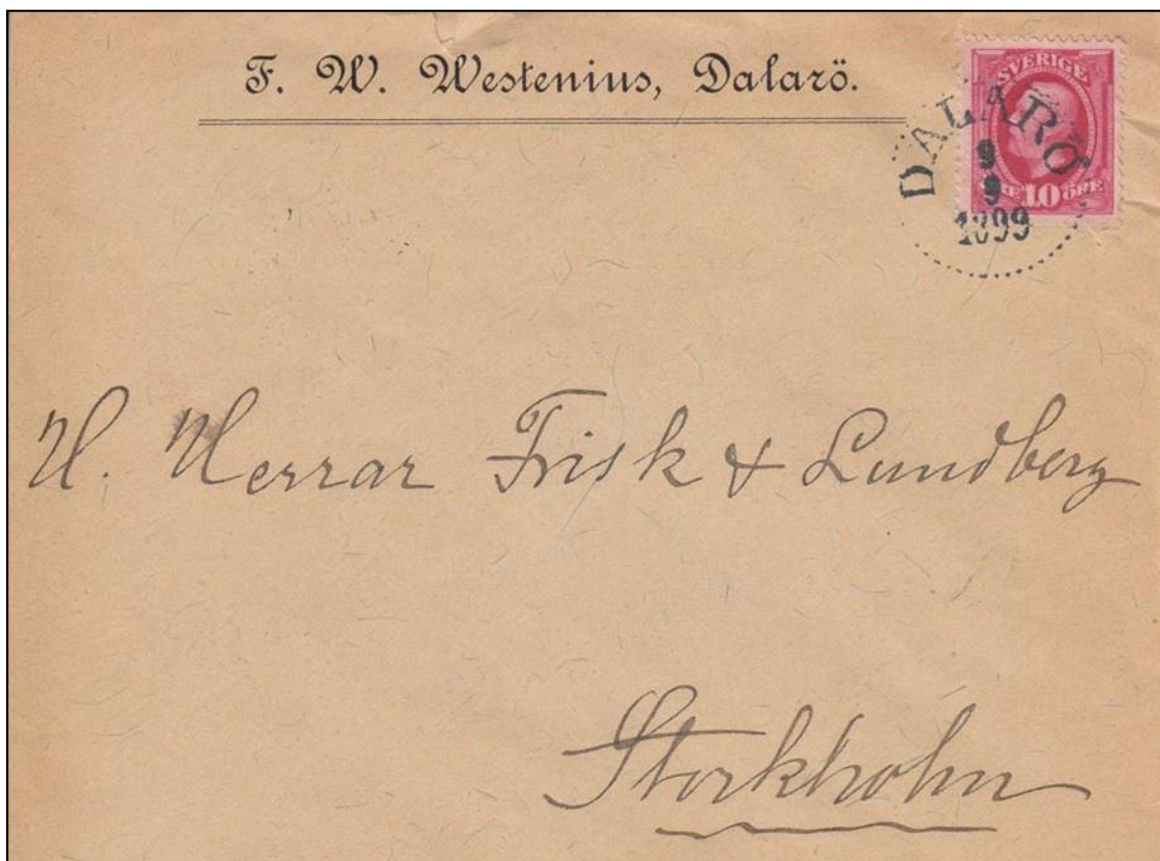 F. W. Westenius, Dalarö.
SVERIGE
10 ÖRE
DALARÖ
9
9
1899
H. Herrar Frisk & Lundberg
Stockholm